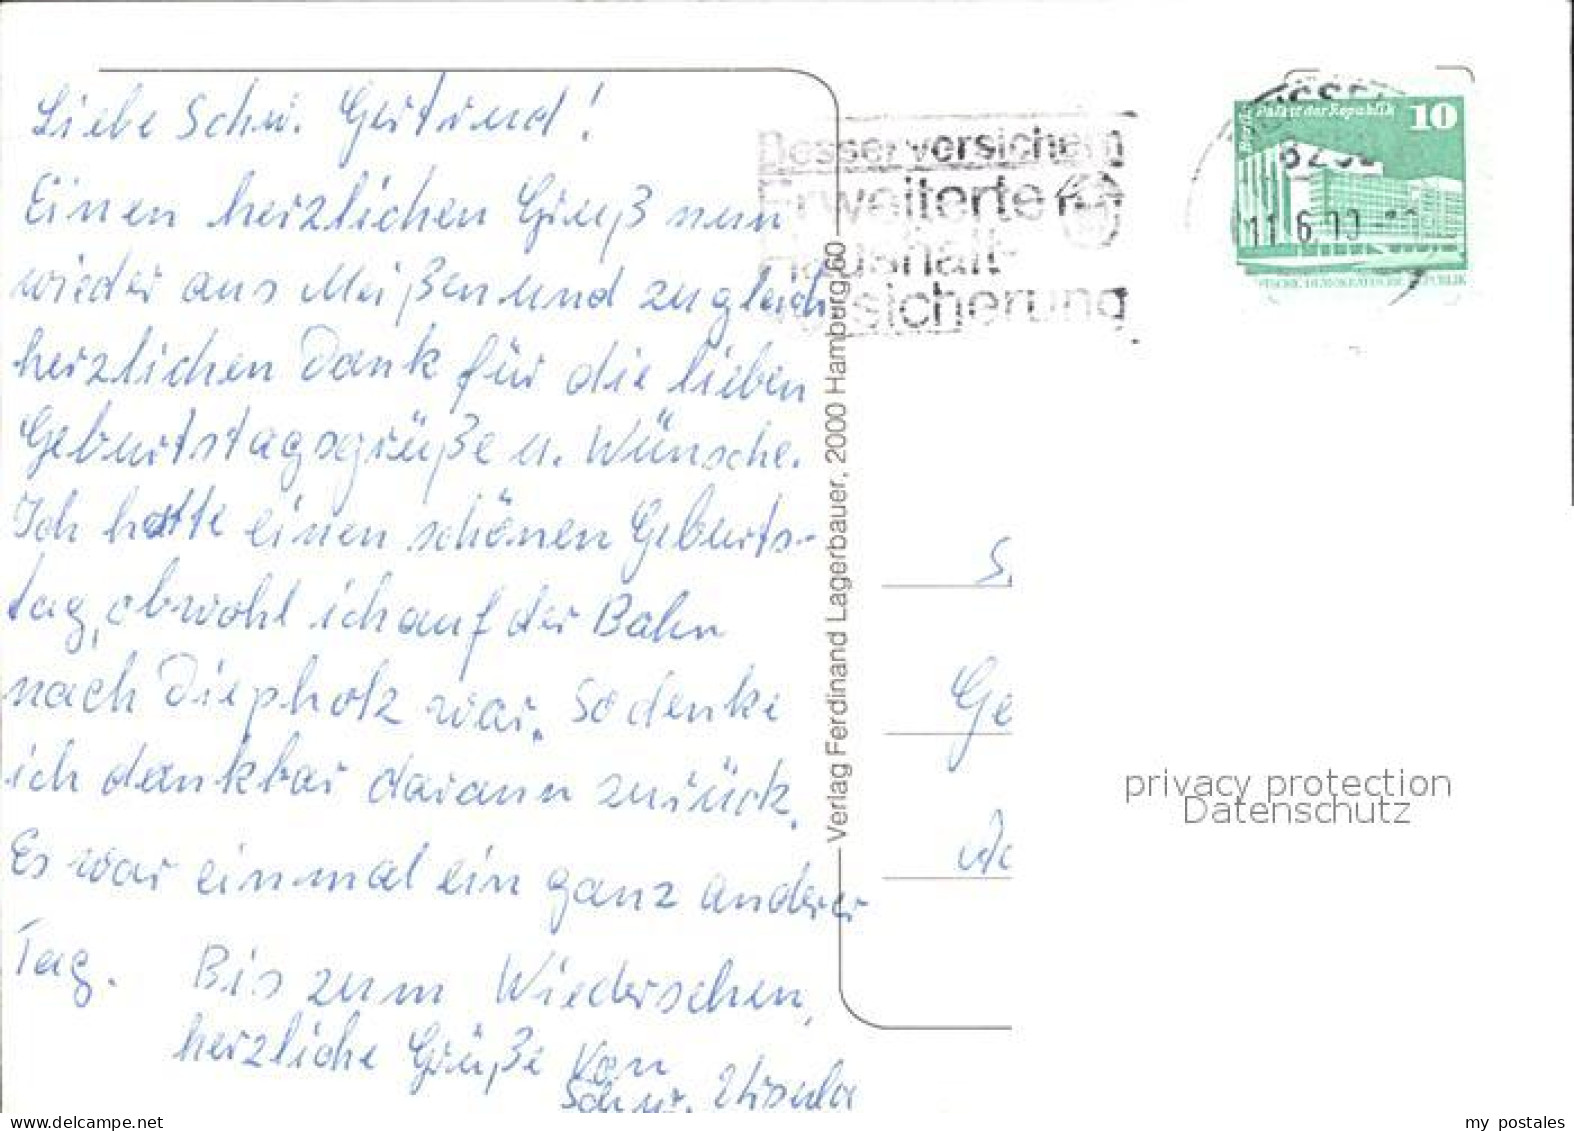 Liebe Schw. Gertrud!
Einen herzlichen Gruß nun
wieder aus Meißen und zugleich
herzlichen Dank für die lieben
Geburtstagsgrüße u. Wünsche.
Ich hatte einen schönen Geburts-
tag, obwohl ich auf der Bahn
nach Diepholz war. So denke
ich dankbar darann zurück.
Es war einmal ein ganz anderer
Tag. Bis zum Wiedersehen,
herzliche Grüße von
Schw. Ursula
Verlag Ferdinand Lagerbauer, 2000 Hamburg 60
Besser versichern
Erweiterte
Haushalt-
versicherung
Berlin Palast der Republik 10
11.6.
Ge
privacy protection
Datenschutz
my postales